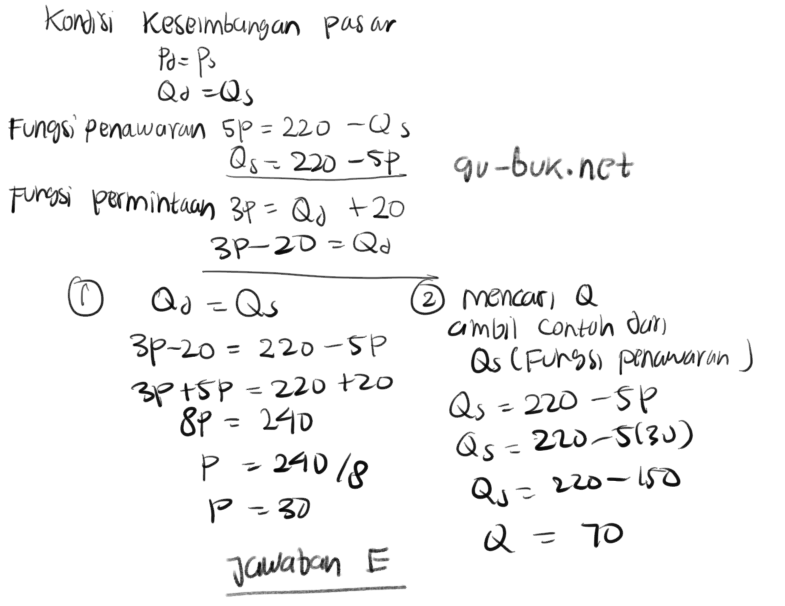 Kondisi Keseimbangan pasar
Pd = Ps
Qd = Qs
Fungsi penawaran 5P = 220 - Qs
Qs = 220 - 5P
gu-buk.net
Fungsi permintaan 3P = Qd + 20
3P - 20 = Qd
① Qd = Qs
3P - 20 = 220 - 5P
3P + 5P = 220 + 20
8P = 240
P = 240/8
P = 30
Jawaban E
② mencari Q
ambil contoh dari
Qs (Fungsi penawaran)
Qs = 220 - 5P
Qs = 220 - 5(30)
Qs = 220 - 150
Q = 70